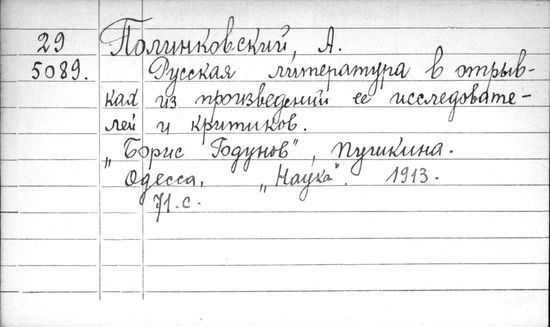 29 Полинковский, А.
5089. Русская литература в отрыв-
ках из произведений ее исследовате-
лей и критиков.
„Борис Годунов", Пушкина.
Одесса, „Наука". 1913.
71.с.